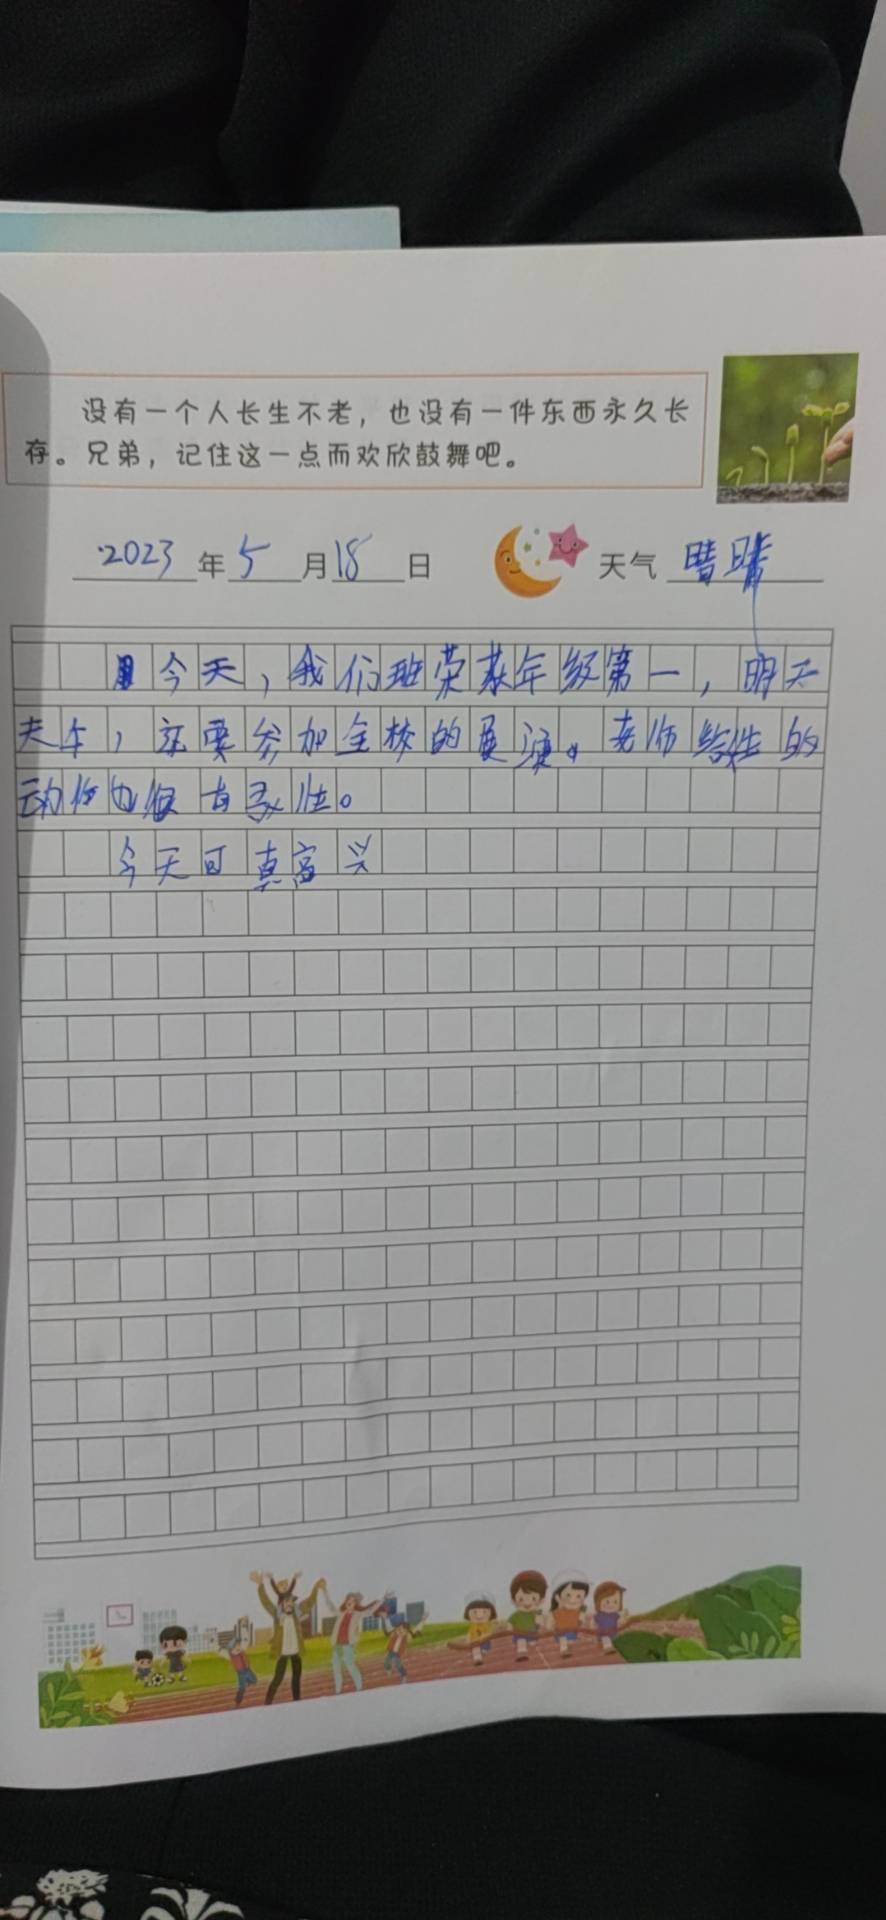 没有一个人长生不老，也没有一件东西永久长
存。兄弟，记住这一点而欢欣鼓舞吧。
2023年5月18日 天气 晴
今天，我们班荣获年级第一，明天
下午，还要参加全校的展演。老师给性的
动作也很有灵性。
今天可真高兴